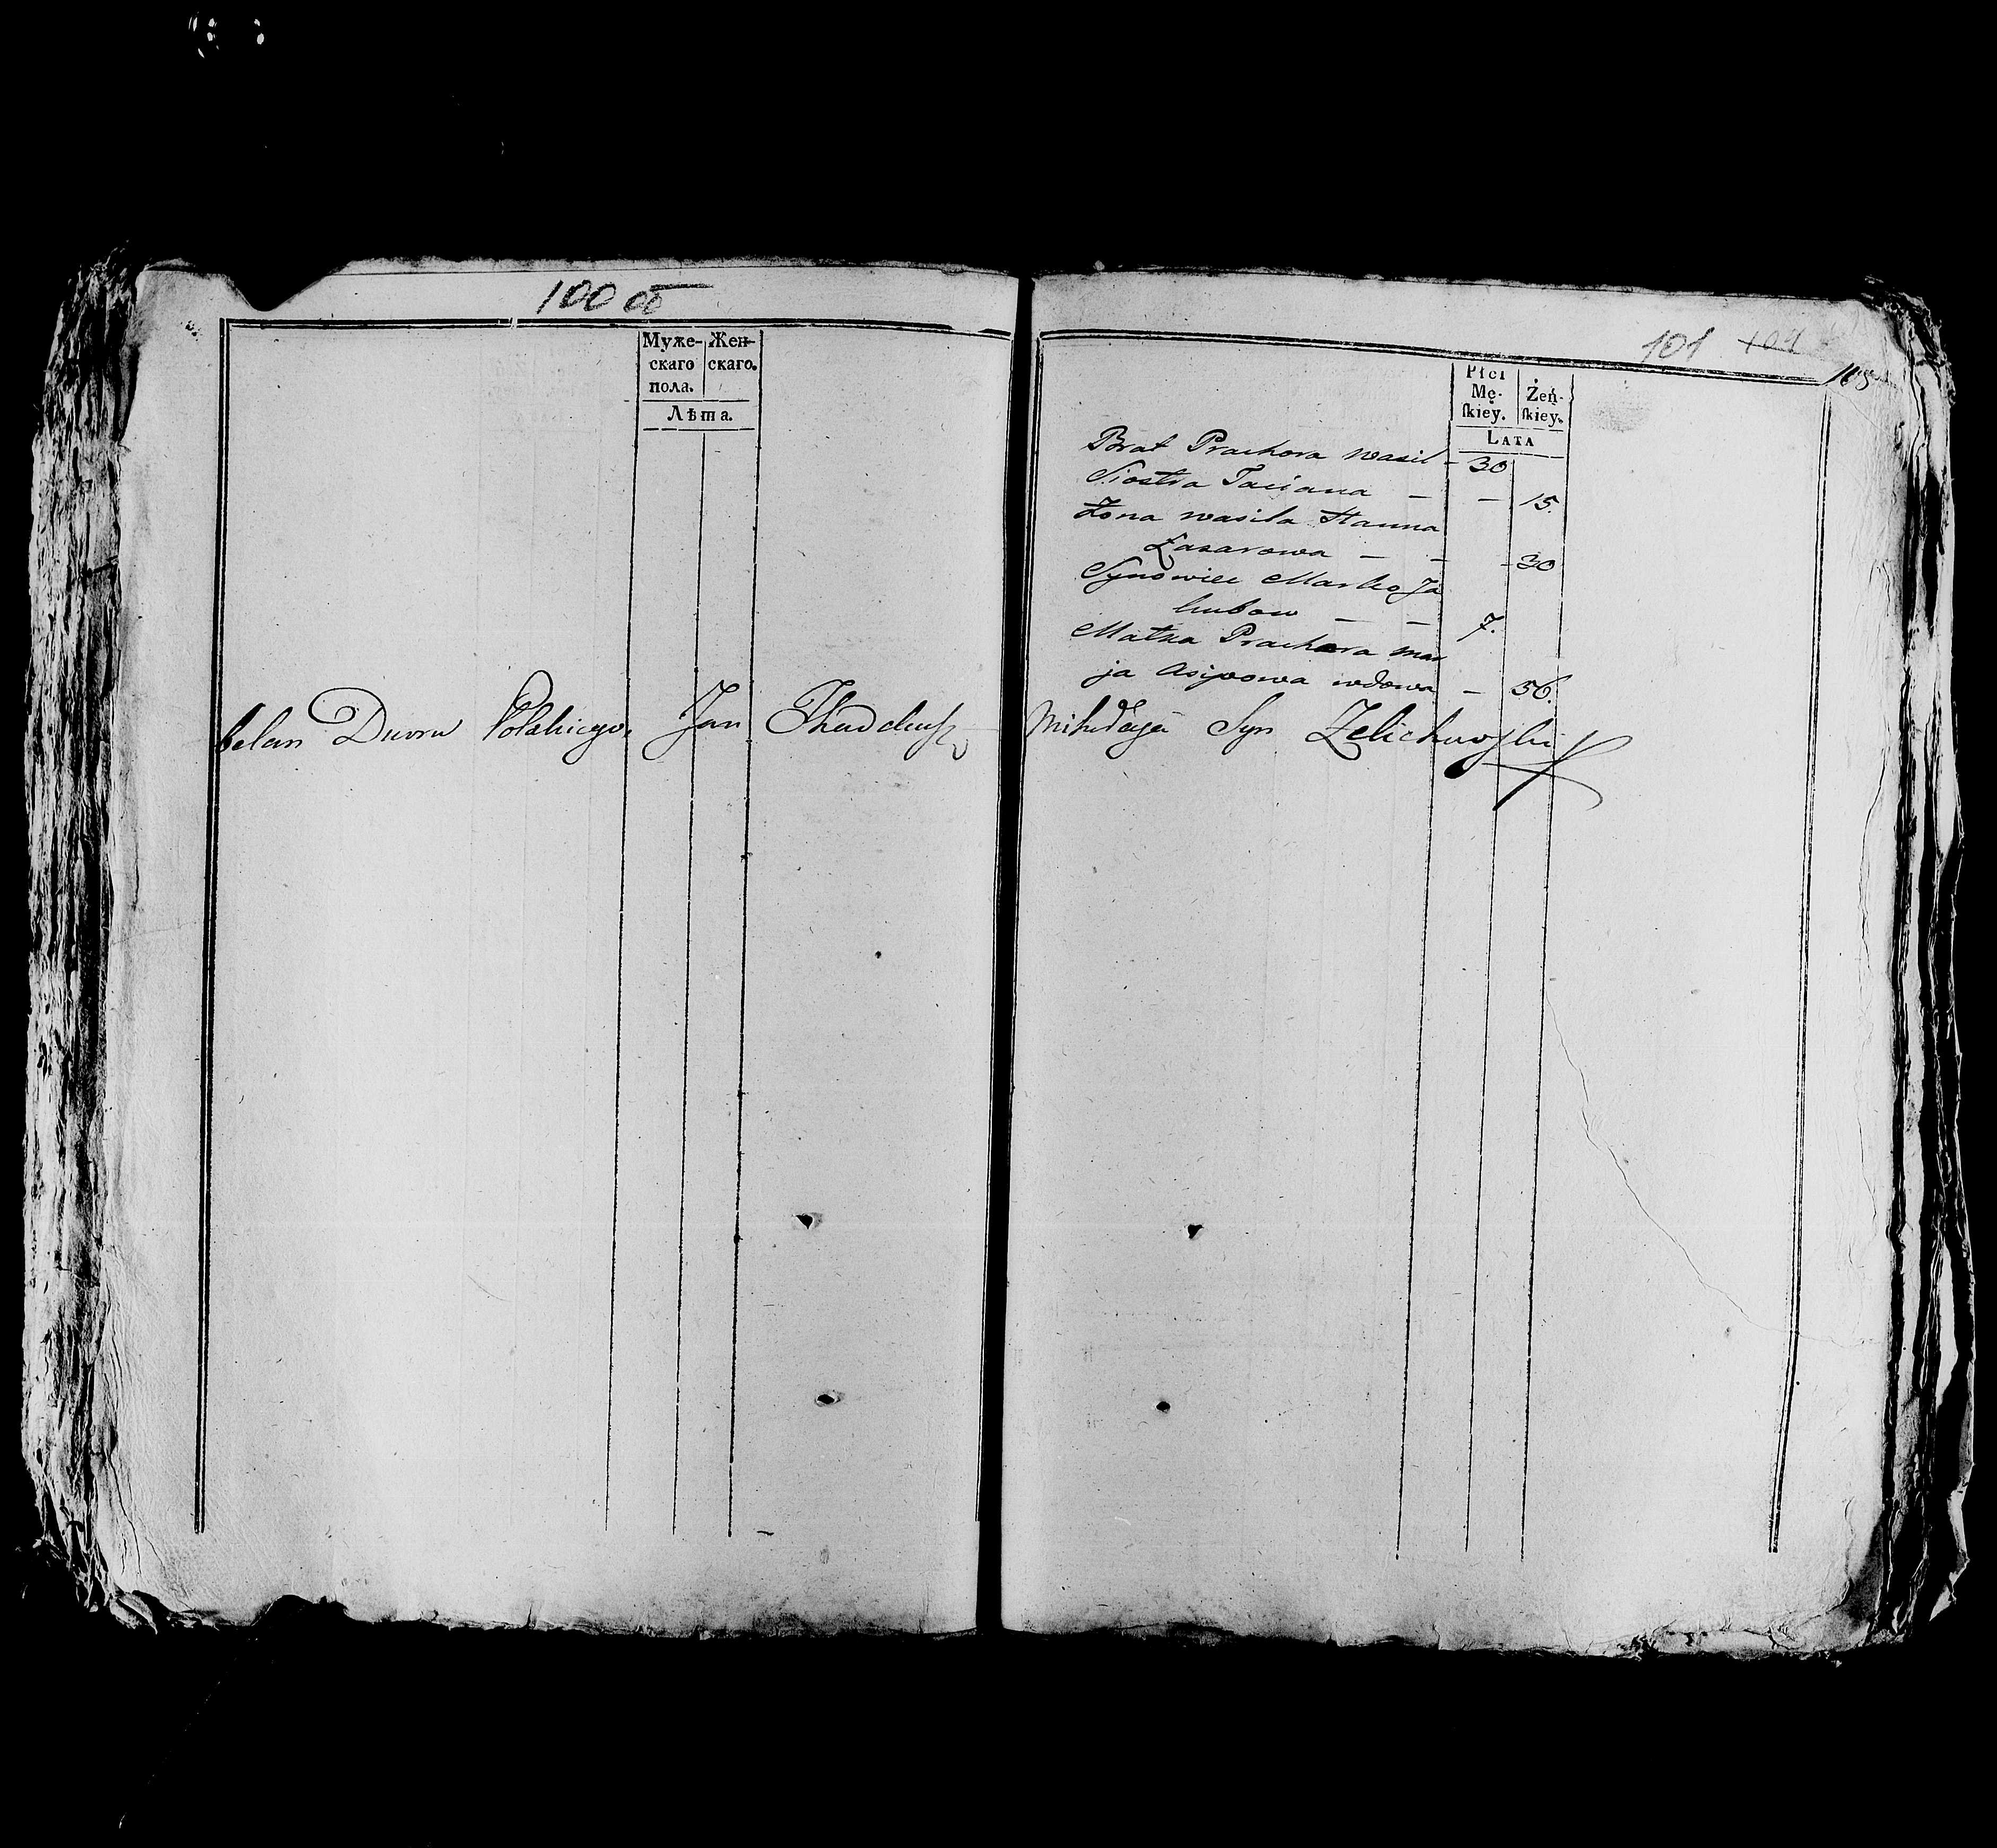 100 об
Муже- Жен-
скаго скаго.
пола.
Лѣта.
101 101
Płci
Mę- Żeń-
ſkiey. ſkiey.
LATA
Brat Prachora Wasil - 30
Siostra Taciana — — 15.
Żona Wasila Hanna
Łazarowa — — - 30
Synowiec Marko Ja
kubow — — 7.
Matka Prachora Mar
ja Asipowa wdowa — 56.
belan Dworu Polskiego. Jan Thadeusz Mikołaja Syn Zelichowski